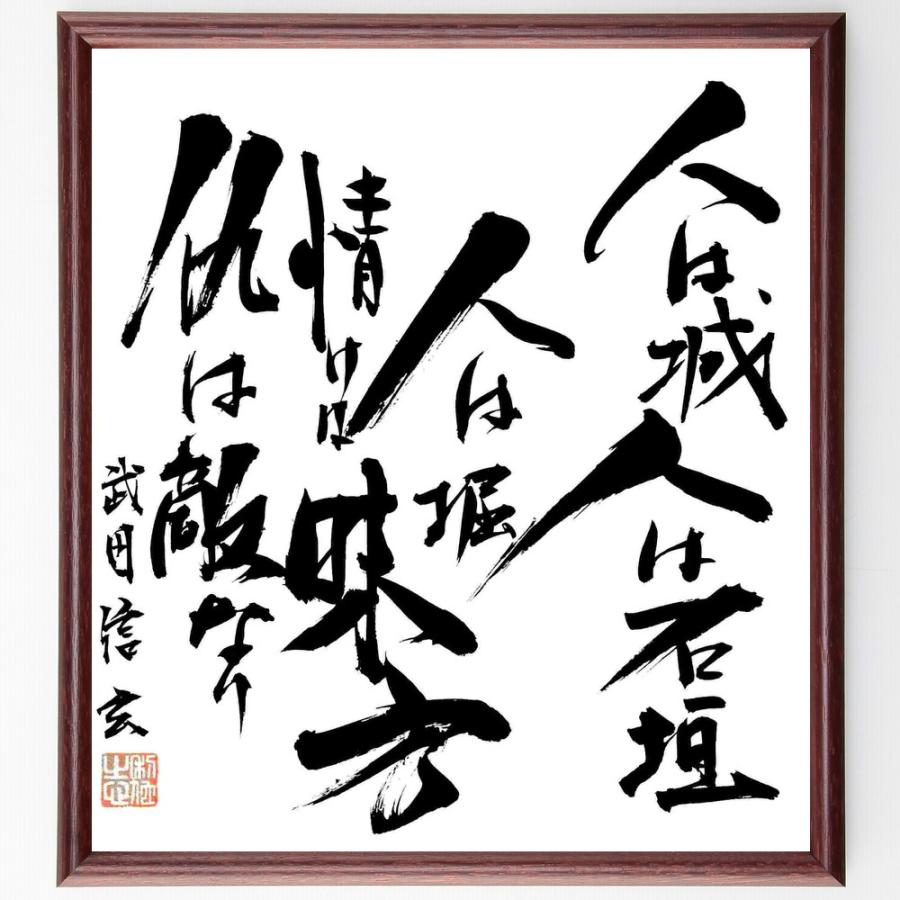 人は城人は石垣
人は堀
情けは味方
仇は敵なり
武田信玄